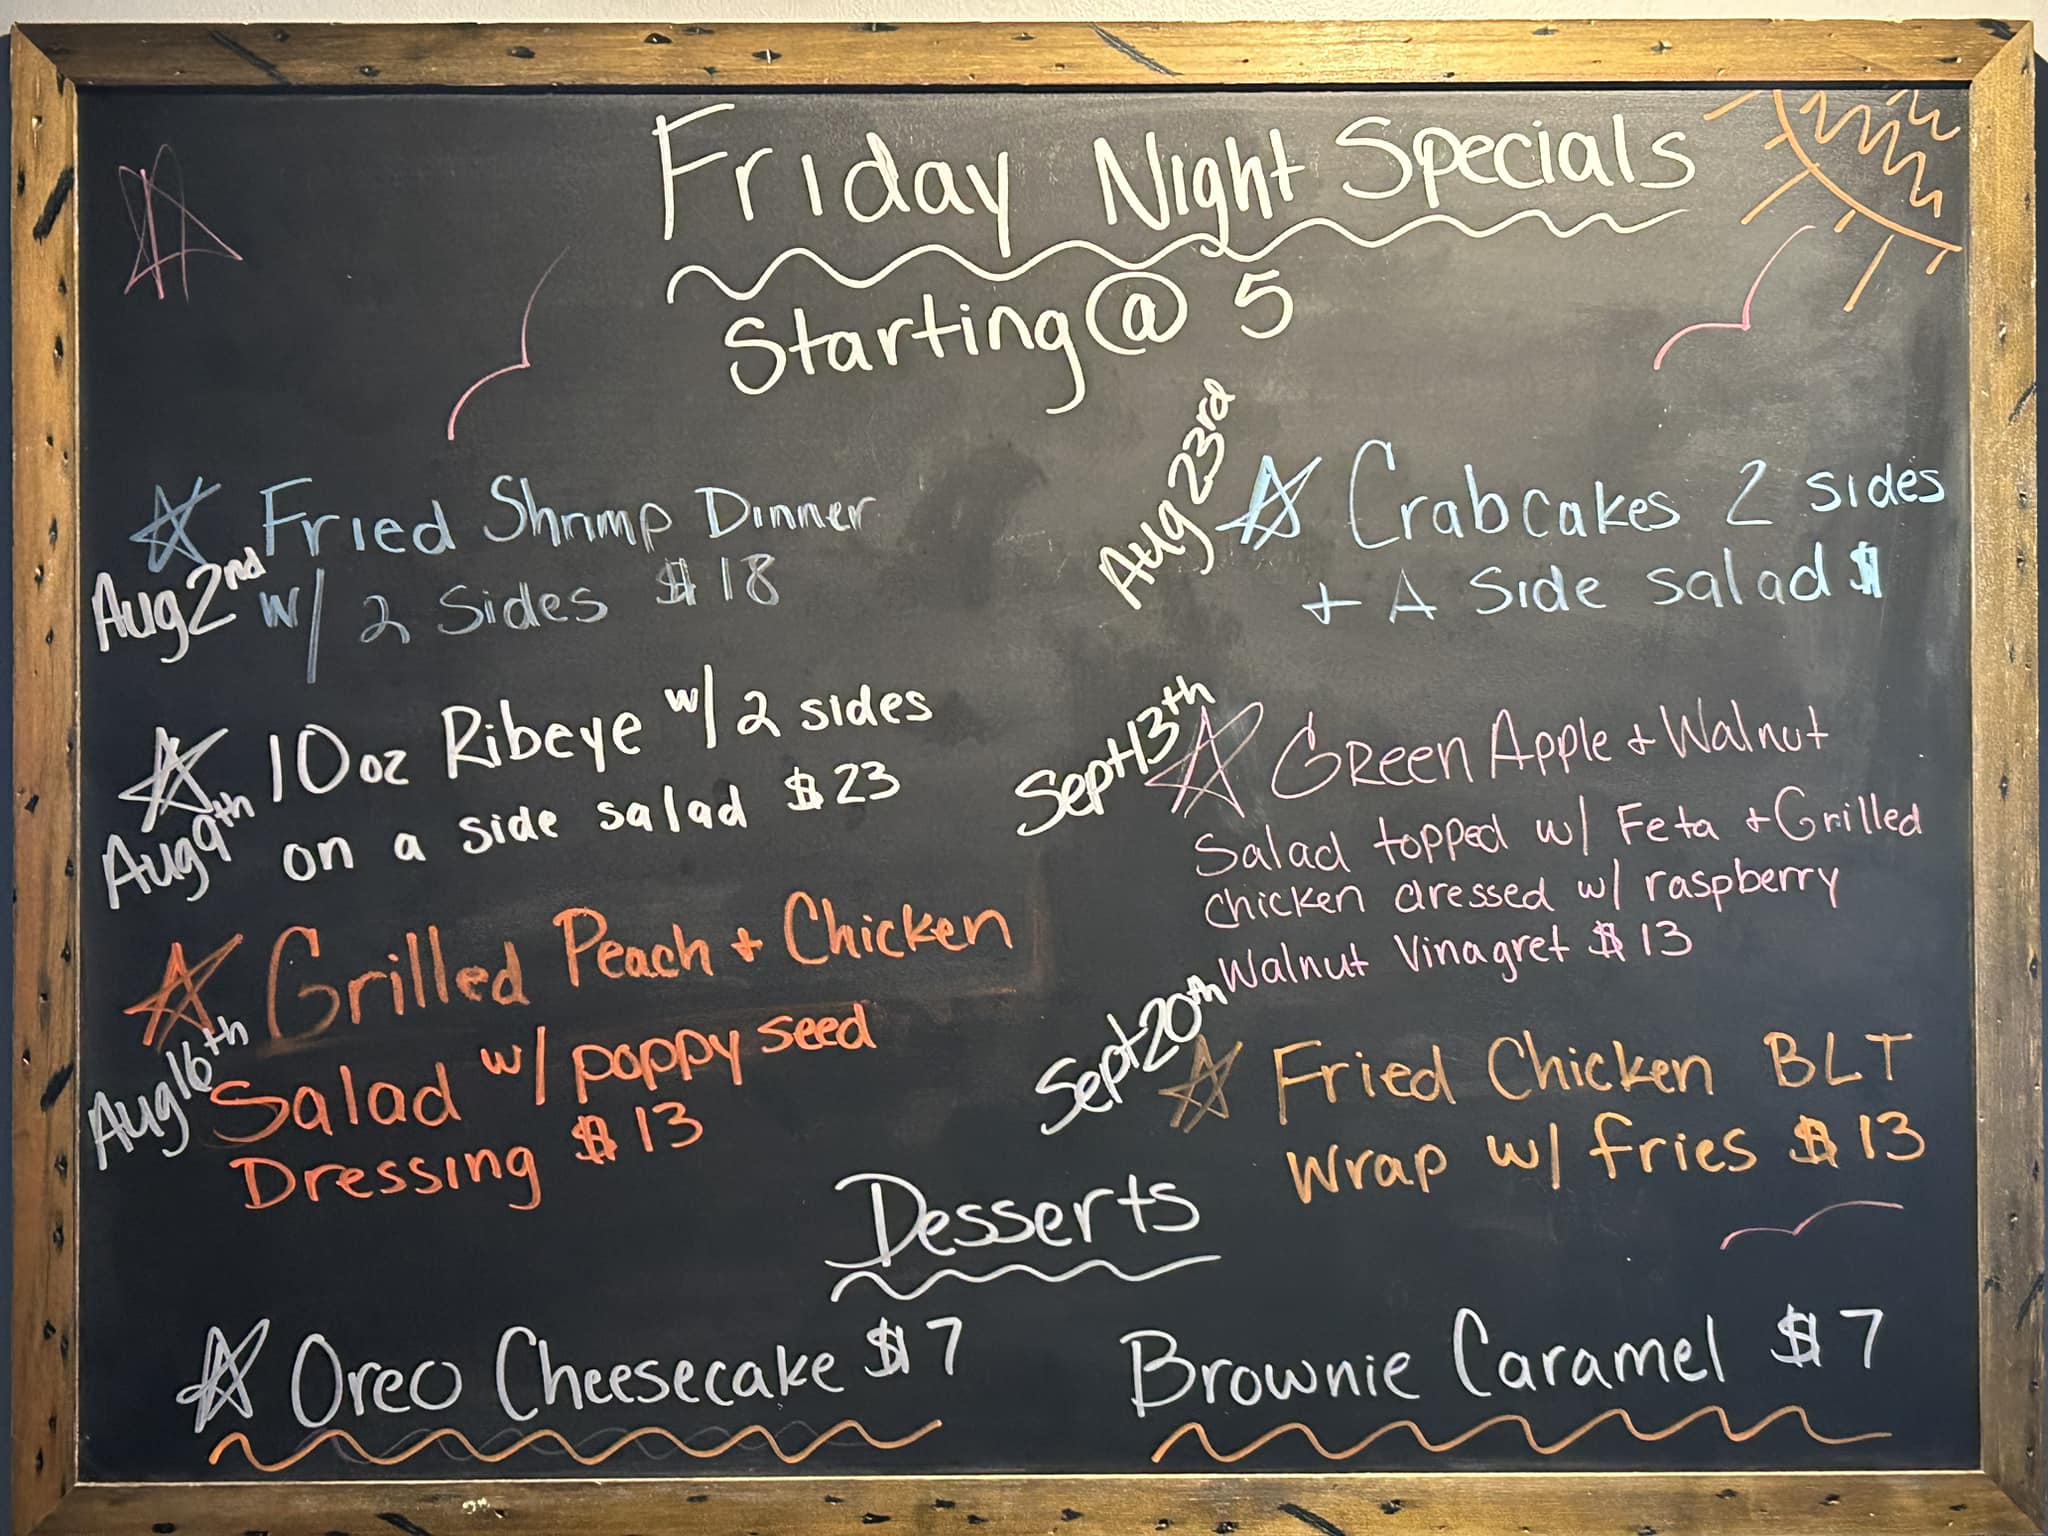 Friday Night Specials
Starting @ 5
Aug 2nd
Fried Shrimp Dinner
w/ 2 Sides $18
Aug 9th
10oz Ribeye w/ 2 sides
on a side salad $23
Aug 16th
Grilled Peach + Chicken
Salad w/ poppy seed
Dressing $13
Aug 23rd
Crabcakes 2 sides
+ A side salad $
Sept 13th
Green Apple + Walnut
Salad topped w/ Feta + Grilled
chicken dressed w/ raspberry
Walnut Vinagret $13
Sept 20th
Fried Chicken BLT
wrap w/ fries $13
Desserts
Oreo Cheesecake $7
Brownie Caramel $7